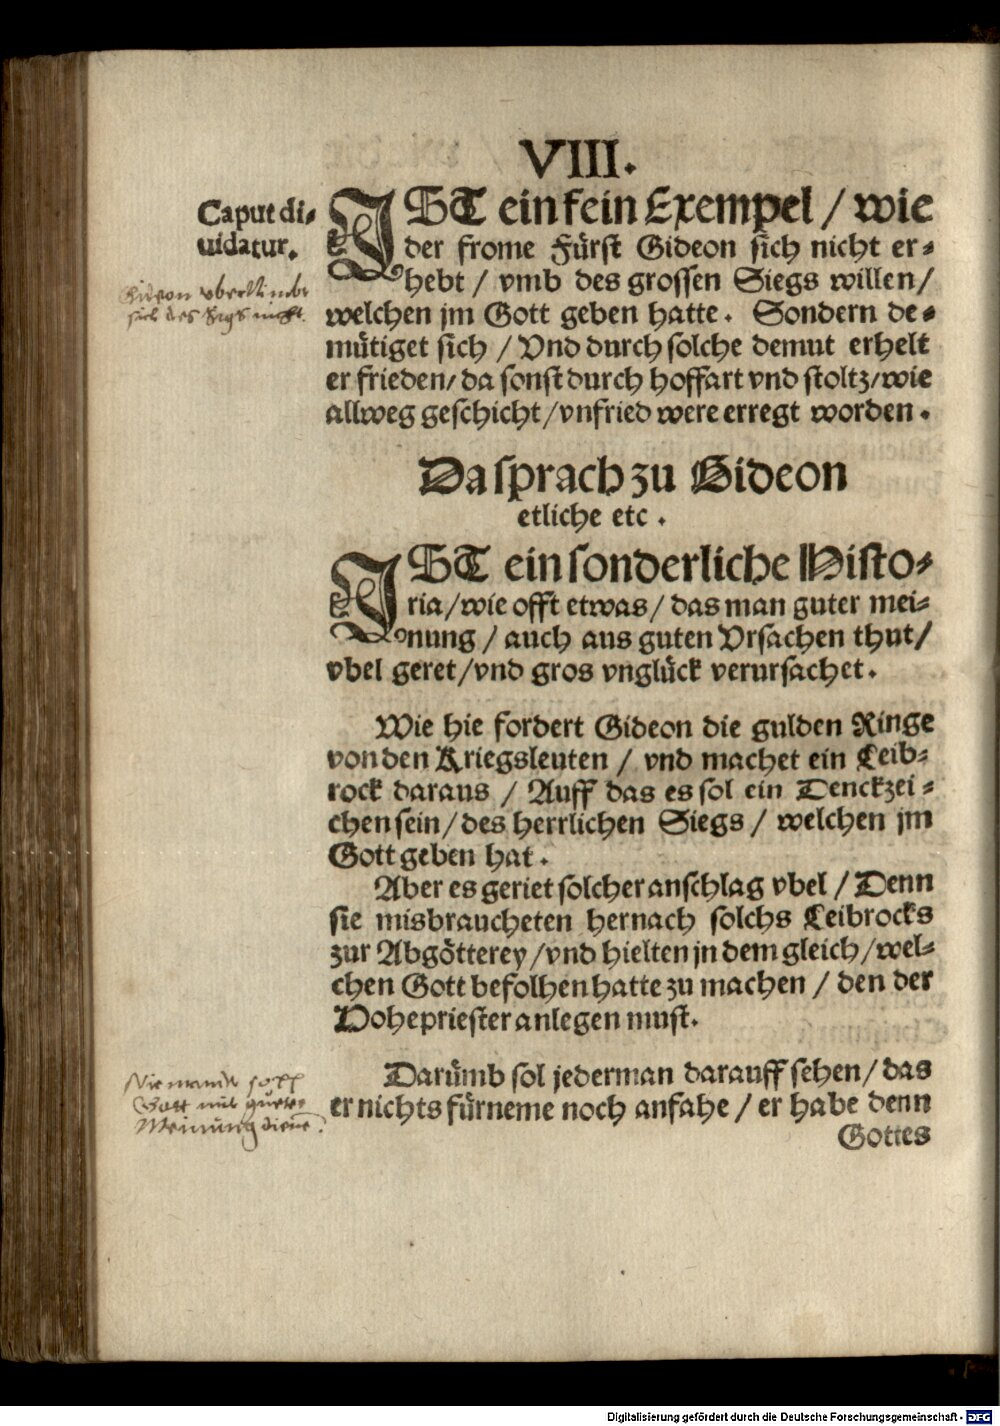 VIII.
Caput di-
uidatur.
Gideon vberhebt
sich des Sigs nicht.
IST ein fein Exempel / wie
der frome Fürst Gideon sich nicht er-
hebt / vmb des grossen Siegs willen /
welchen jm Gott geben hatte. Sondern de-
mütiget sich / Vnd durch solche demut erhelt
er frieden / da sonst durch hoffart vnd stoltz / wie
allweg geschicht / vnfried were erregt worden.
Da sprach zu Gideon
etliche etc.
IST ein sonderliche Histo-
ria / wie offt etwas / das man guter mei-
nung / auch aus guten Vrsachen thut /
vbel geret / vnd gros vnglück verursachet.
Wie hie fordert Gideon die gulden Ringe
von den Kriegsleuten / vnd machet ein Leib-
rock daraus / Auff das es sol ein Denckzei-
chen sein / des herrlichen Siegs / welchen jm
Gott geben hat.
Aber es geriet solcher anschlag vbel / Denn
sie misbraucheten hernach solchs Leibrocks
zur Abgötterey / vnd hielten jn dem gleich / wel-
chen Gott befolhen hatte zu machen / den der
Hohepriester anlegen must.
Niemands soll
Gott mit gueter
Meinung diene.
Darümb sol jederman darauff sehen / das
er nichts fürneme noch anfahe / er habe denn
Gottes
Digitalisierung gefördert durch die Deutsche Forschungsgemeinschaft - DFG